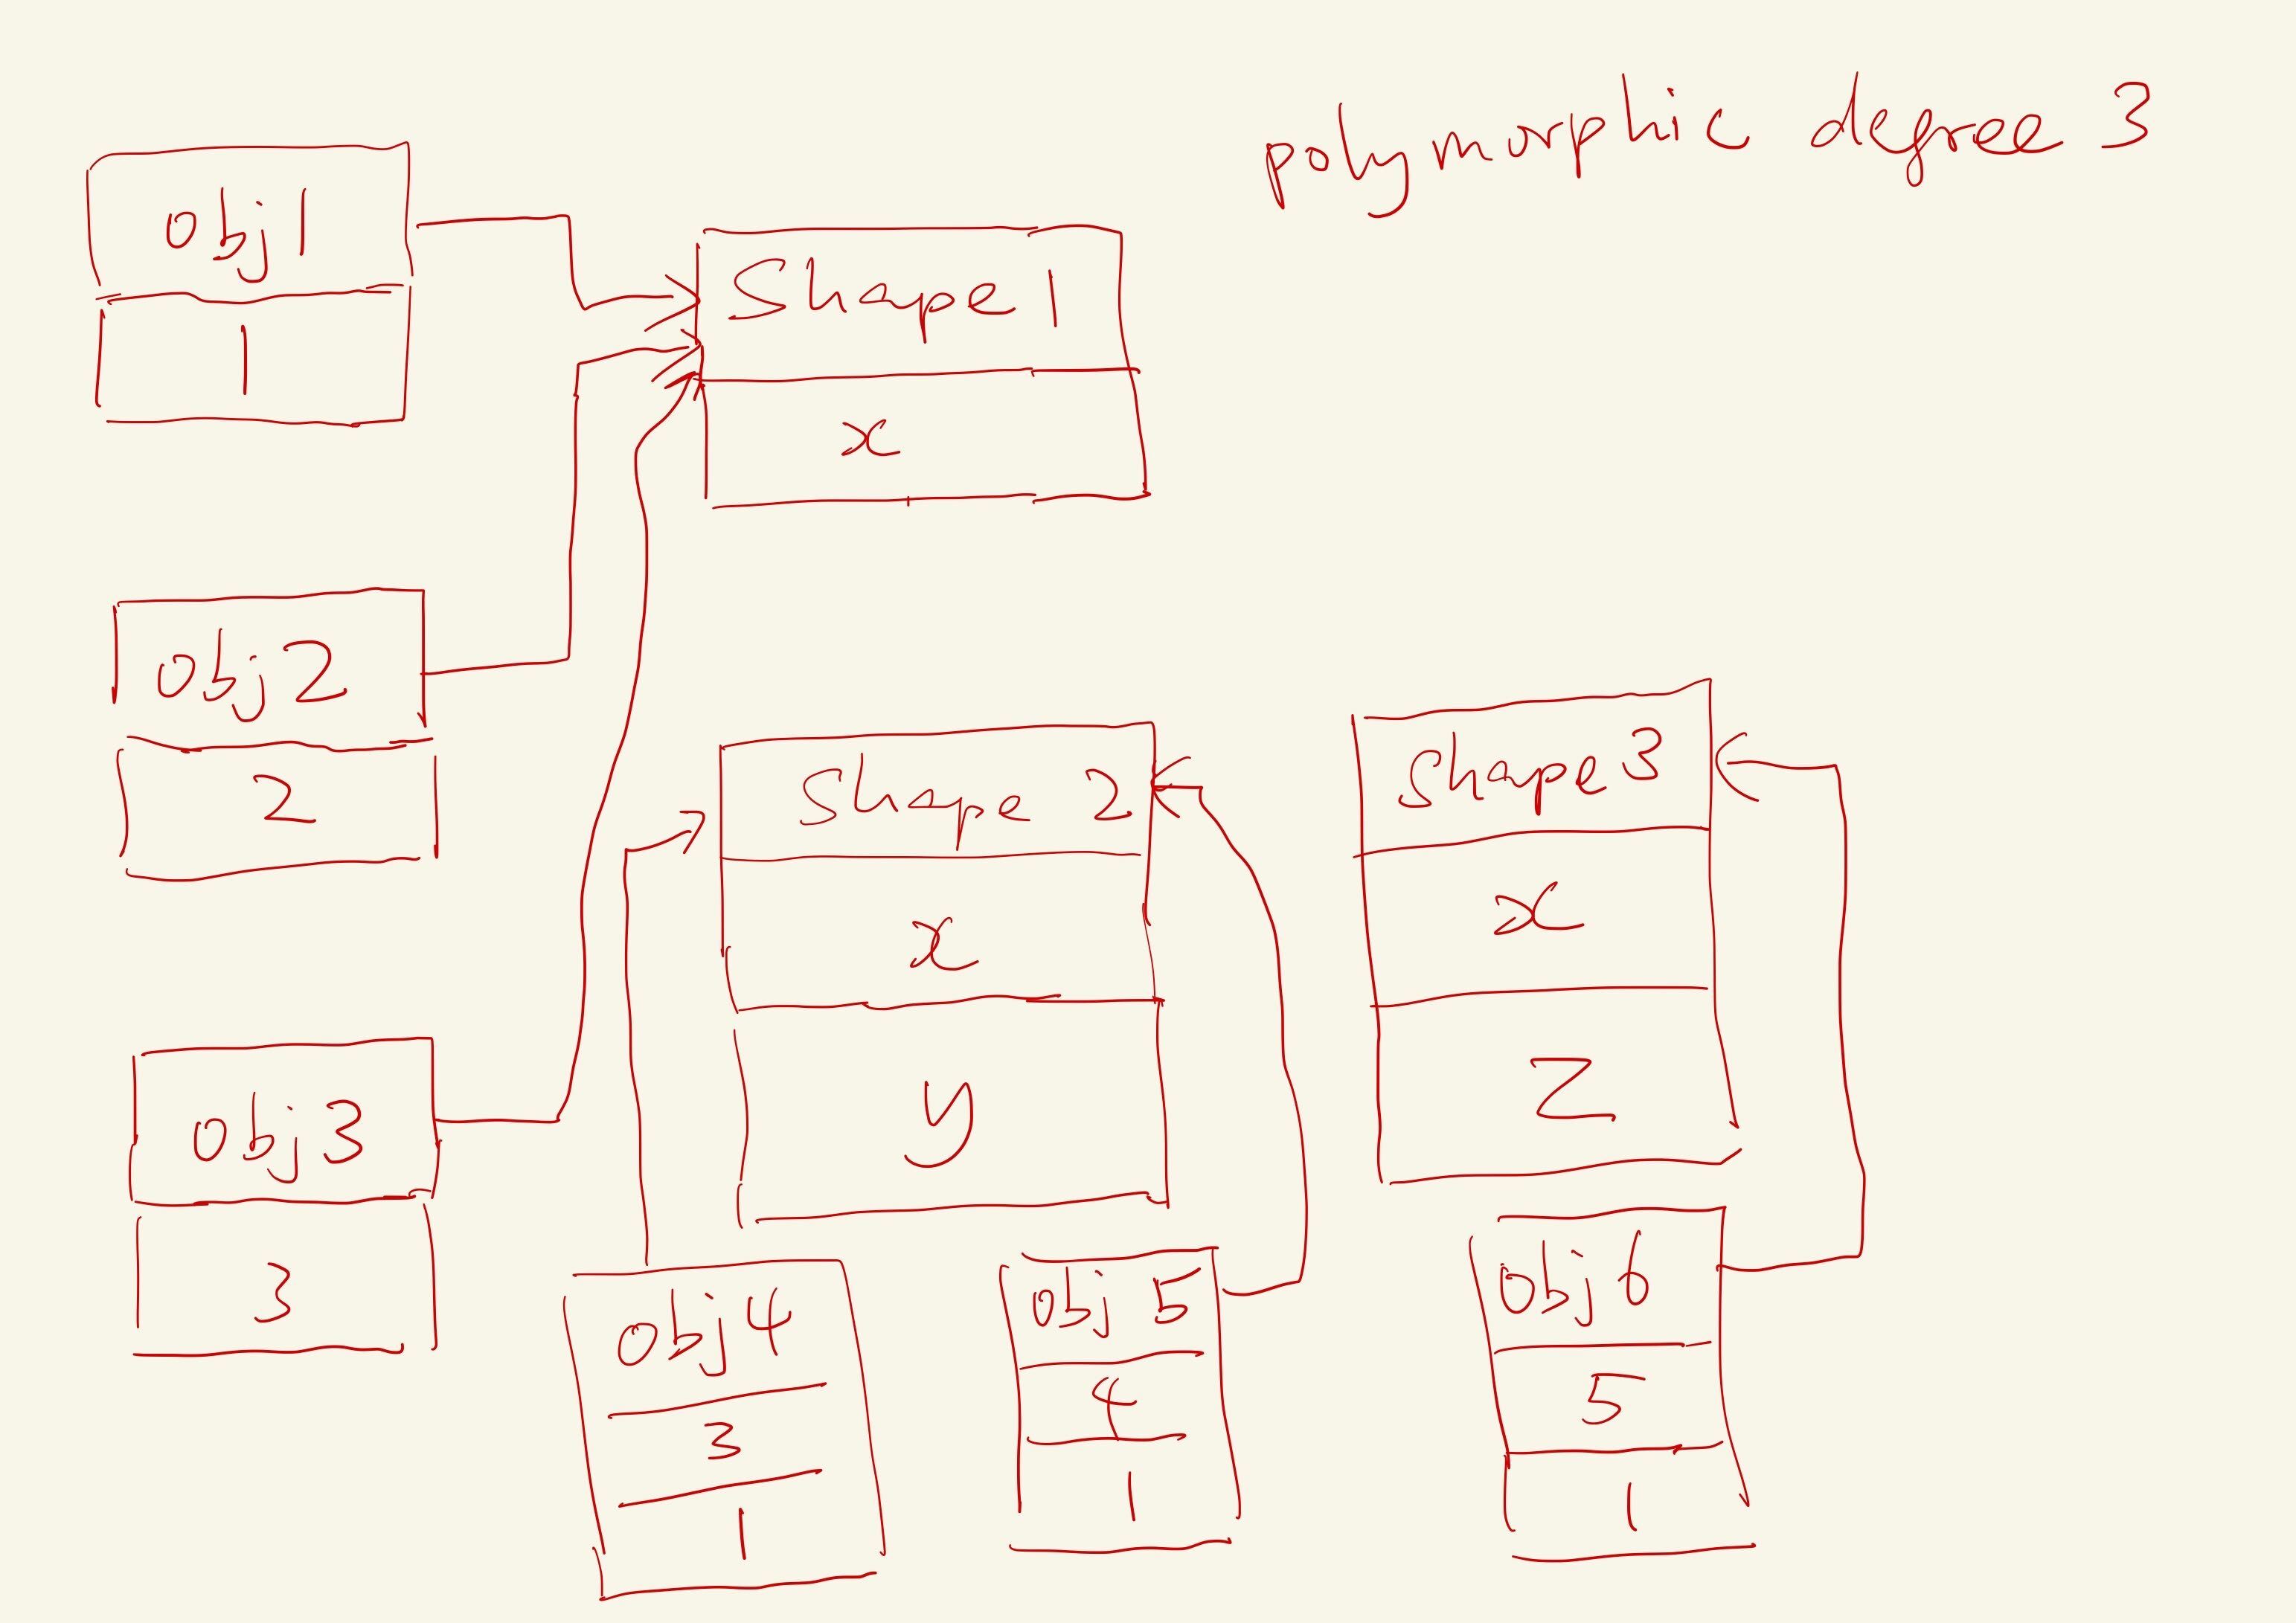 polymorphic degree 3
obj1
1
Shape 1
x
obj2
2
Shape 2
x
y
Shape 3
x
z
obj3
3
obj4
3
1
obj 5
4
1
obj6
5
1